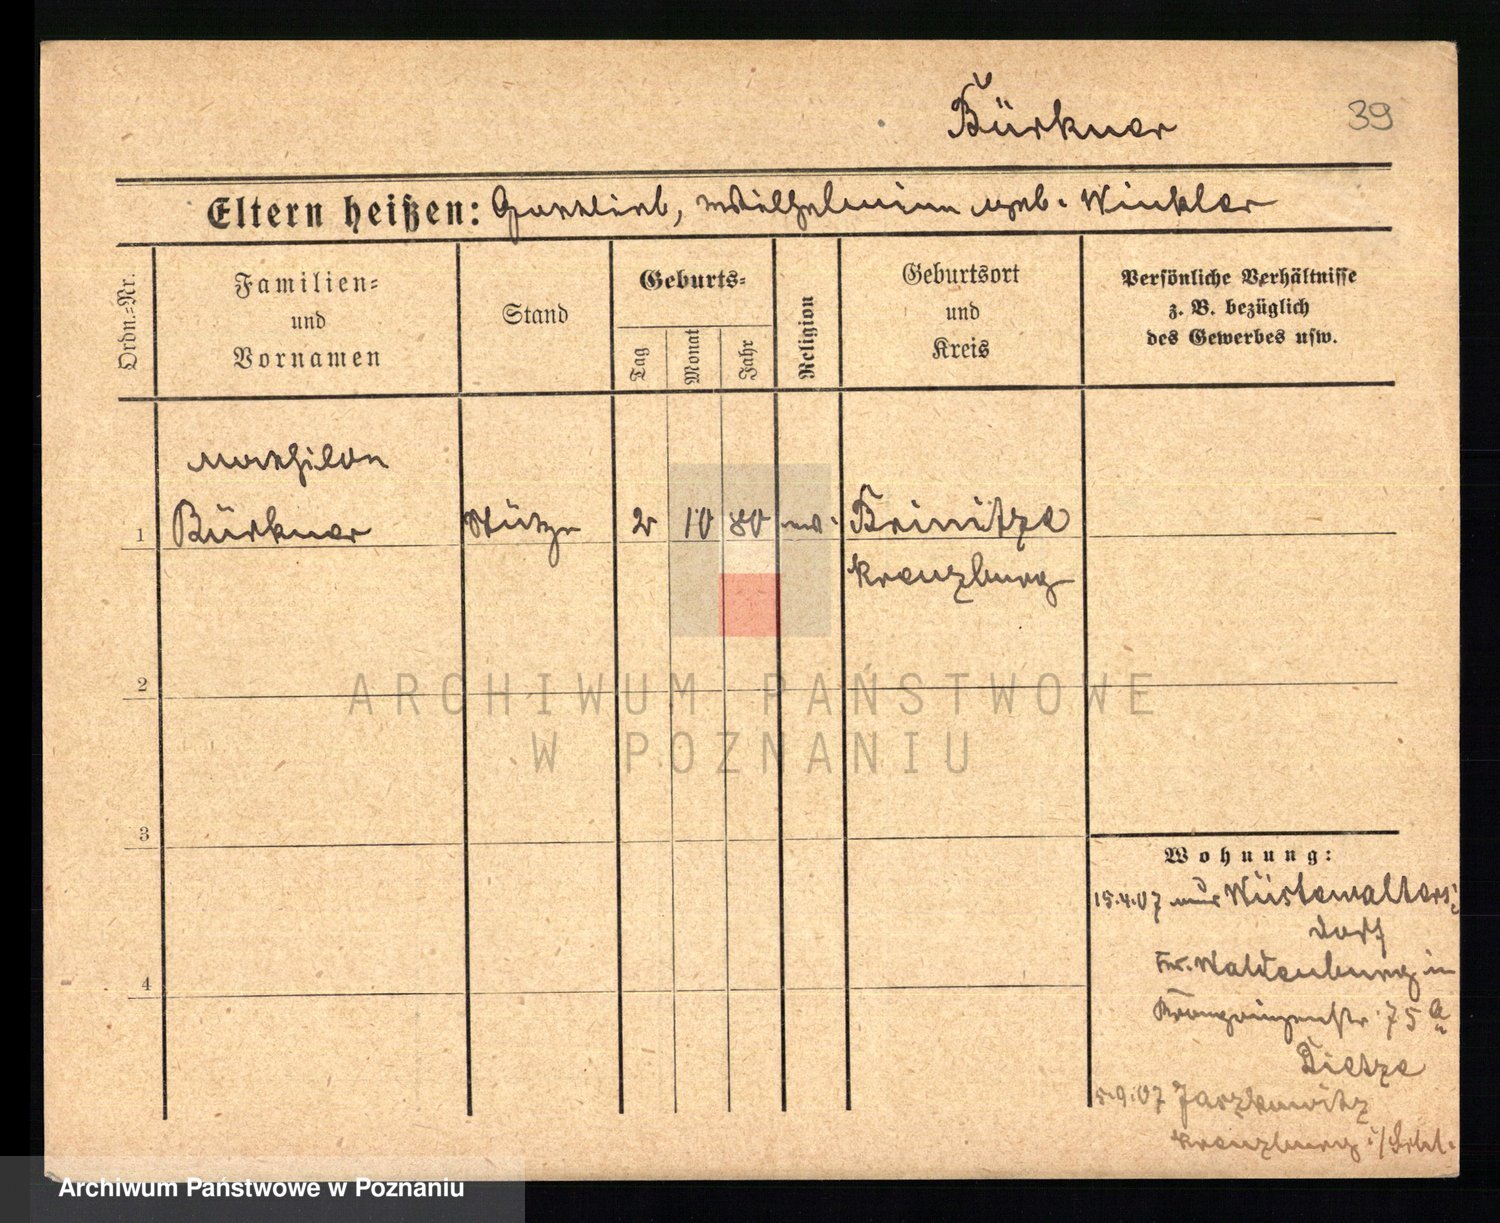 Bürkner
39
Eltern heißen: Gottlieb, Wilhelmine geb. Winkler
Ordn.=Nr.
Familien=
und
Vornamen
Stand
Geburts=
Tag
Monat
Jahr
Religion
Geburtsort
und
Kreis
Persönliche Verhältnisse
z. B. bezüglich
des Gewerbes usw.
Mathilde
1 Bürkner Stütze 2 10 80 ev. Brinitze
Kreuzburg
2
ARCHIWUM PAŃSTWOWE
W POZNANIU
3
Wohnung:
15.4.07 aus Wüstewalters=
dorf
Kr. Waldenburg in
Kronprinzenstr. 75a
Dietze
5.9.07
Kreuzburg
4
Archiwum Państwowe w Poznaniu